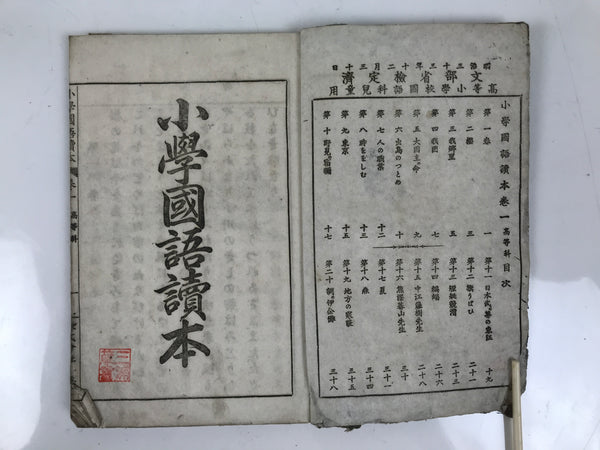 文部省檢定濟
高等小學校國語科兒童用
小學國語讀本卷一 高等科 目次
第一 春 一
第二 櫻 三
第三 我鄉里 五
第四 我國 七
第五 大國主の命 九
第六 のつとめ 十
第七 人の職業 十二
第八 時ををしむ 十三
第九 東京 十五
第十 野見の宿禰 十七
第十一 日本武の尊の東征 十九
第十二 二十一
第十三 二十三
第十四 蝙蝠 二十六
第十五 中江藤樹先生 二十八
第十六 熊澤蕃山先生 三十
第十七 夏
第十八 三十四
第十九 地方の 三十五
第二十 三十八
小學國語讀本
小學國語讀本 卷一 高等科 一